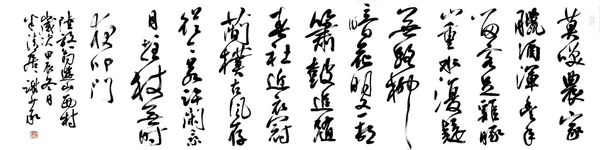 莫笑農家
臘酒渾豐年
留客足雞豚
山重水復疑
無路柳
暗花明又一村
簫鼓追隨
春社近衣冠
簡樸古風存
從今若許閑乘
月拄杖無時
夜叩門
陸放翁遊山西村
歲次甲辰冬月